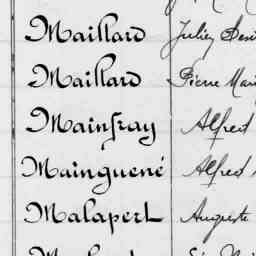 Maillard Jules Dési
Maillard Pierre Mari
Mainfray Alfred
Mainguené Alfred
Malapert Auguste